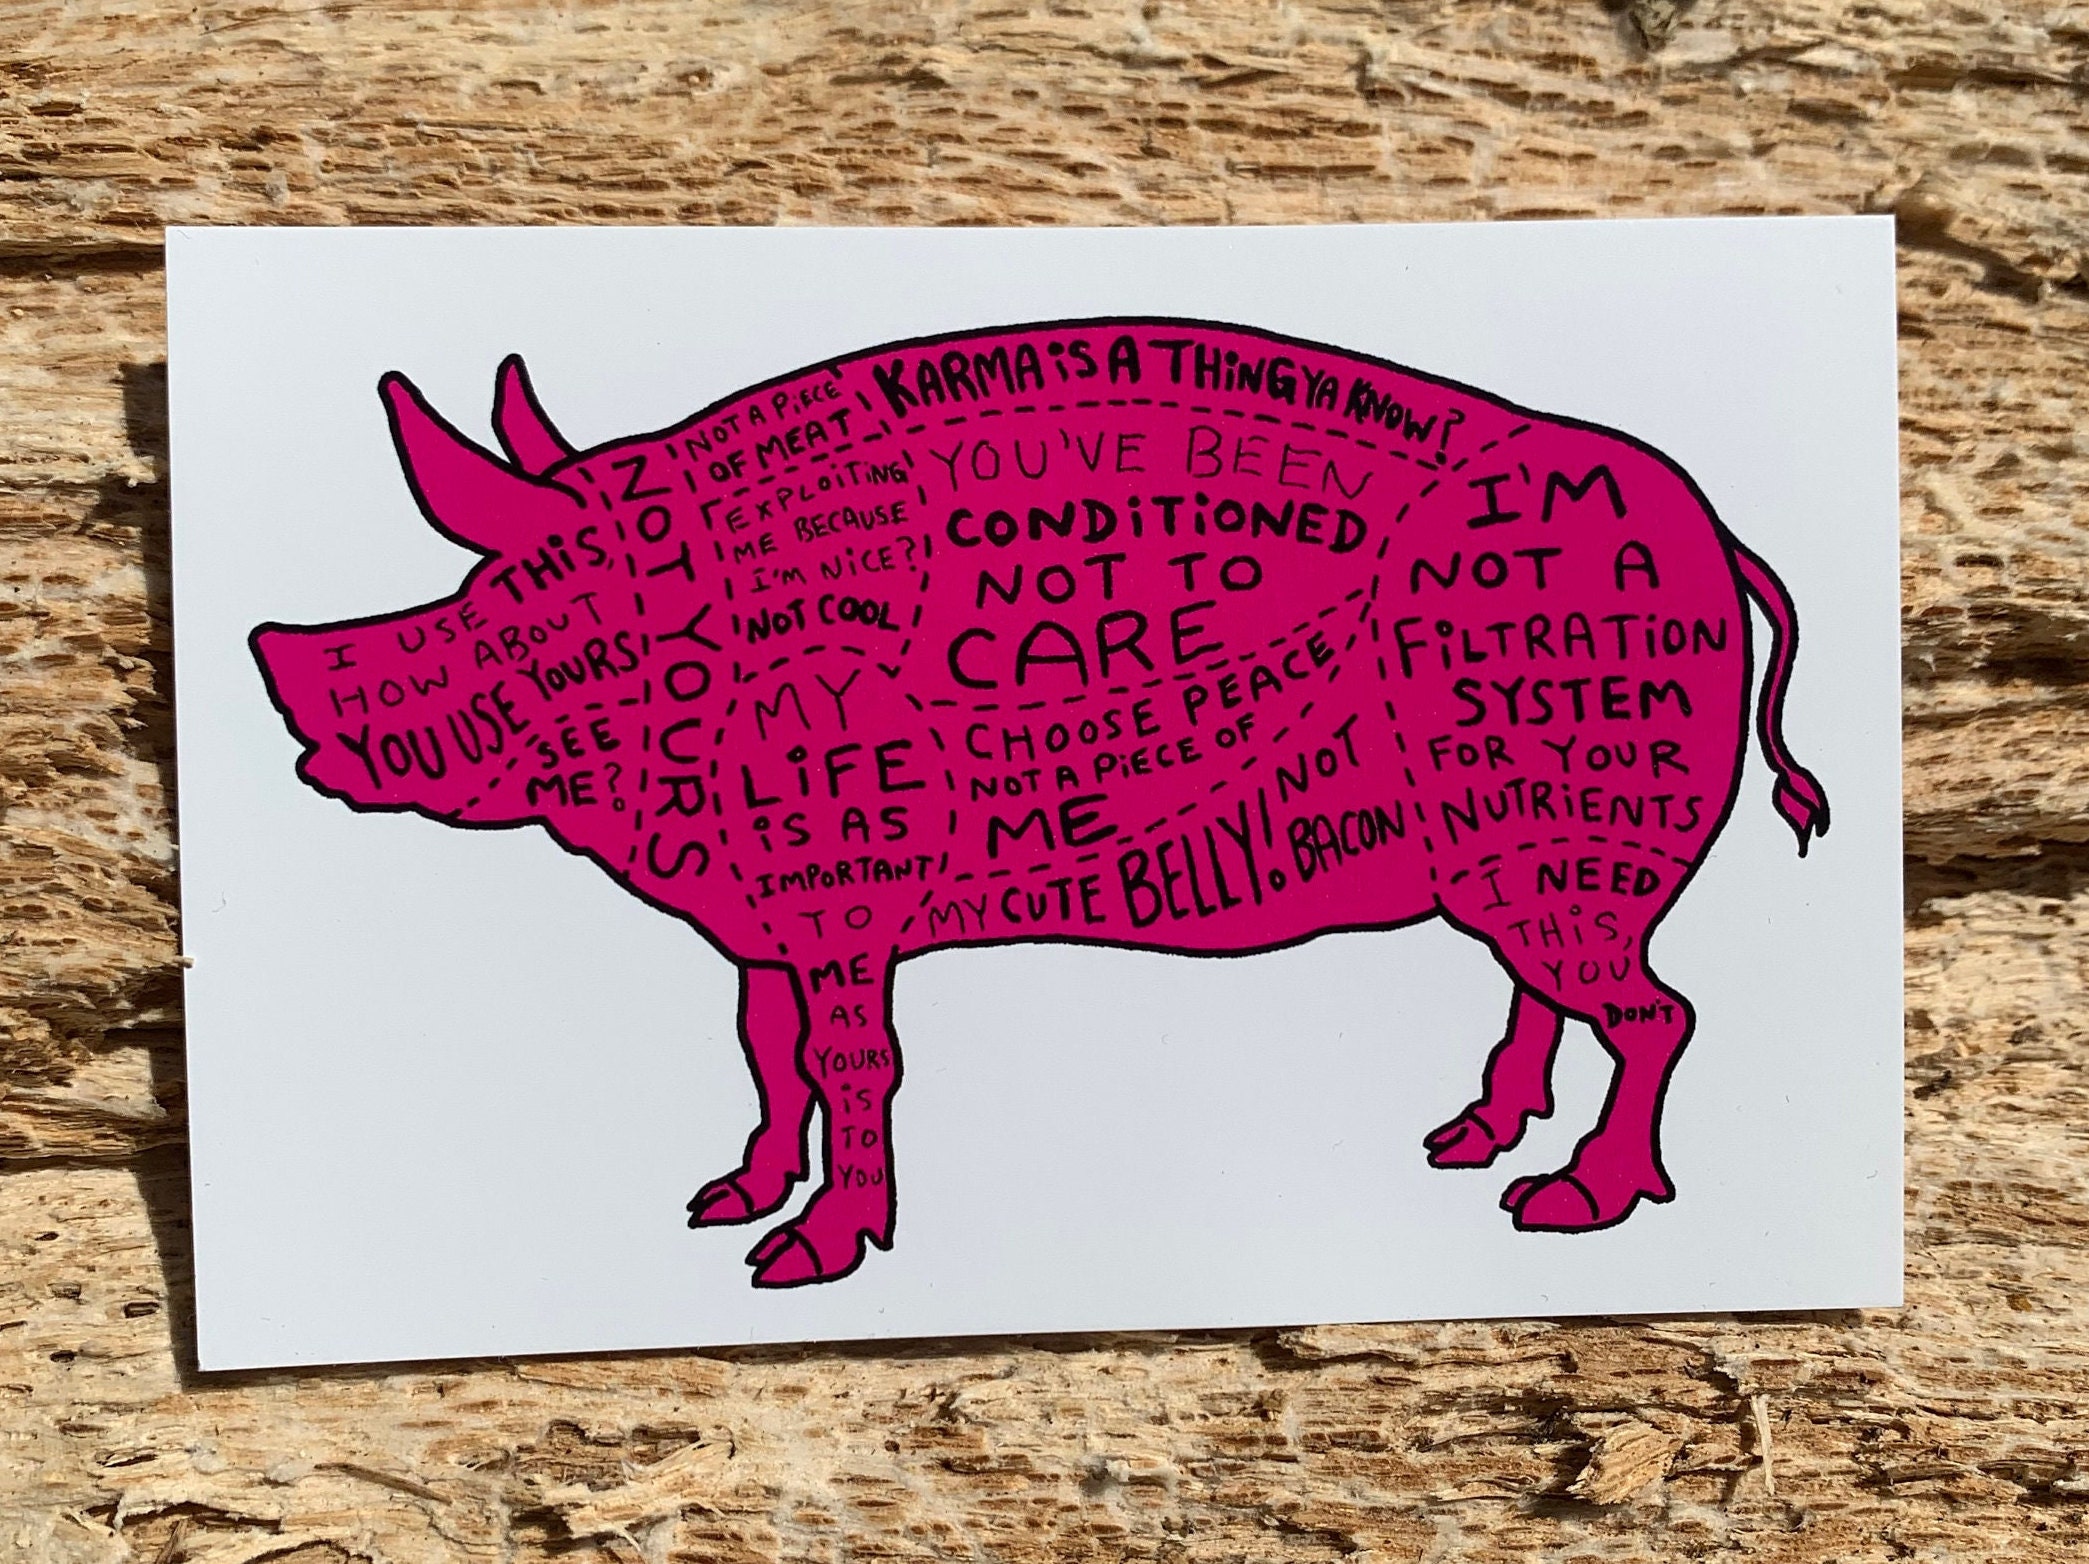 I USE THIS,
HOW ABOUT
YOU USE YOURS
SEE
ME?
NOT YOURS
NOT A PIECE
OF MEAT
EXPLOITING
ME BECAUSE
I'M NICE?
NOT COOL
KARMA IS A THING YA KNOW?
YOU'VE BEEN
CONDITIONED
NOT TO
CARE
MY
LIFE
IS AS
IMPORTANT
TO
ME
AS
YOURS
IS
TO
YOU
CHOOSE PEACE
NOT A PIECE OF
ME
MY CUTE BELLY! NOT
BACON
I'M
NOT A
FILTRATION
SYSTEM
FOR YOUR
NUTRIENTS
I NEED
THIS,
YOU
DON'T